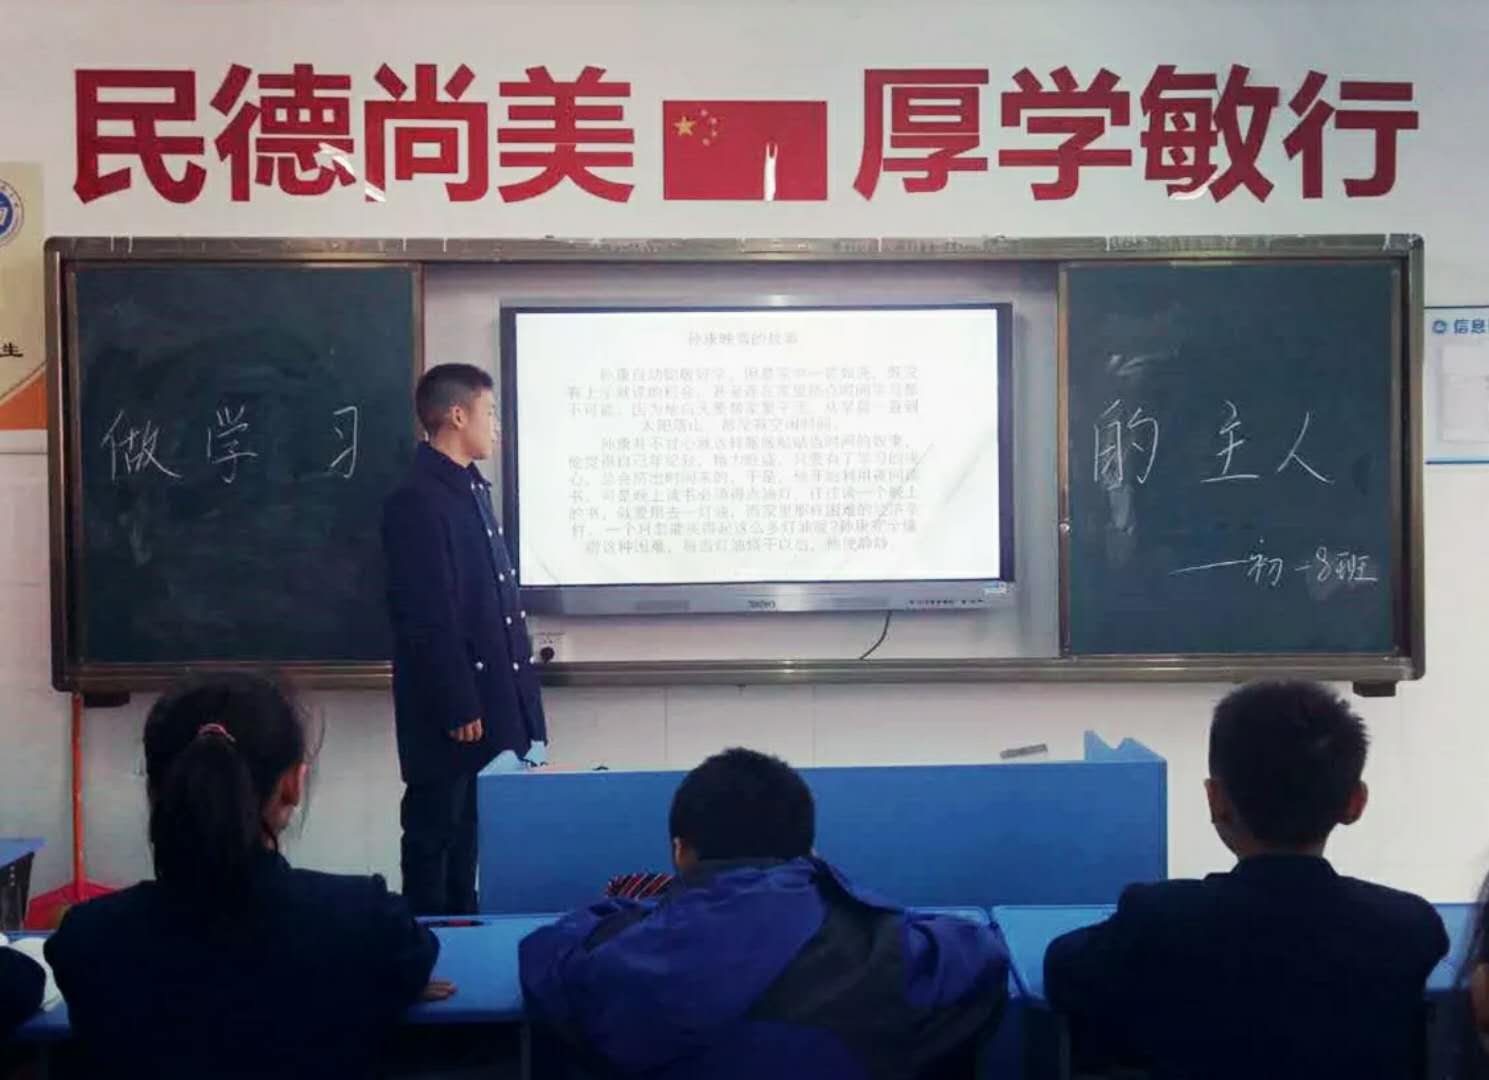 民德尚美 厚学敏行
生
信息
做学习 的主人
——初一8班
孙康映雪的故事
孙康自 聪敏好学，但是家中一贫如洗，既没
有上学就读的机会，甚至连在家里抽点时间学习都
不可能，因为他白天要帮家里干活，从早晨一直到
太阳落山，都没有空闲时间。
孙康并不甘心就这样 时间的奴隶，
他觉得自己年纪轻，精力旺盛，只要有了学习的决
心，总会挤出时间来的，于是，他开始利用夜间读
书，可是晚上读书必须得点油灯，往往读一个晚上
的书，就要用去一灯油，而家里那样困难的经济条
件，一个月怎能买得起这么多灯油呢?孙康充分体
谅这种困难，每当灯油烧干以后，他便静静